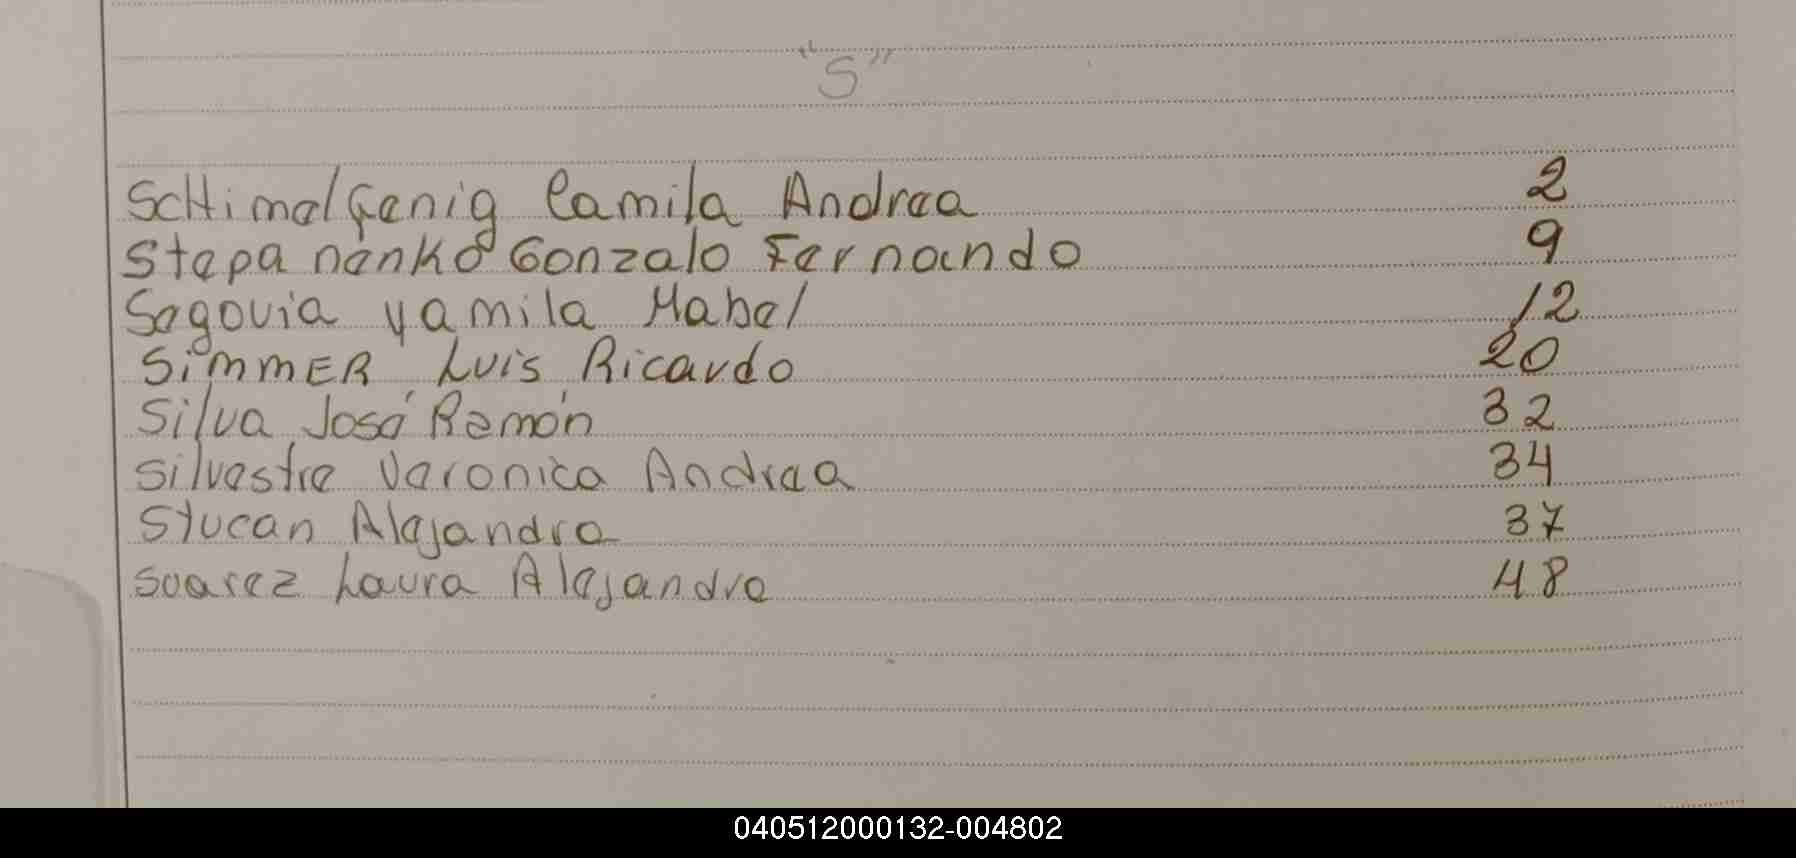 "S"
SCHimelfenig Camila Andrea 2
Stepanenko Gonzalo Fernando 9
Segovia Yamila Mabel 12
SimmER Luis Ricardo 20
Silva José Ramón 32
Silvestre Veronica Andrea 34
Stucan Alejandra 37
Suarez Laura Alejandra 48
040512000132-004802